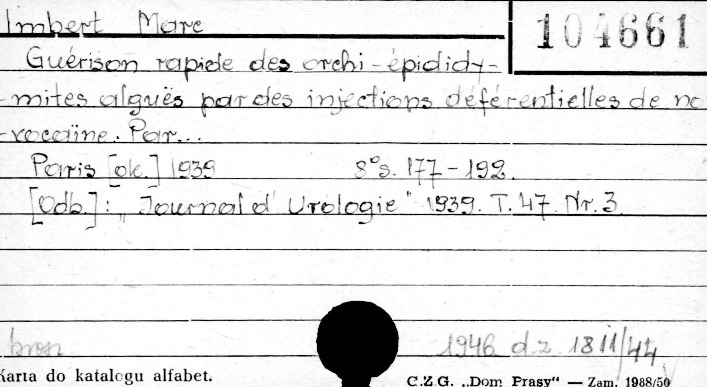 Imbert Marc
104661
Guérison rapide des orchi-épididy-
mites alguës par des injections déférentielles de no
vocaïne. Par...
Paris [ok.] 1939 8°s. 177-192.
[Odb.]: „Journal d'Urologie" 1939. T. 47. Nr. 3
bron. 1946 d.z. 1811/44
Karta do katalogu alfabet. C.Z.G. „Dom Prasy" — Zam. 1988/50